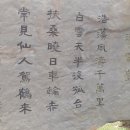 浩蕩風濤千萬里
白雲天半台
扶桑曉日車輪赤
常見仙人駕鶴來